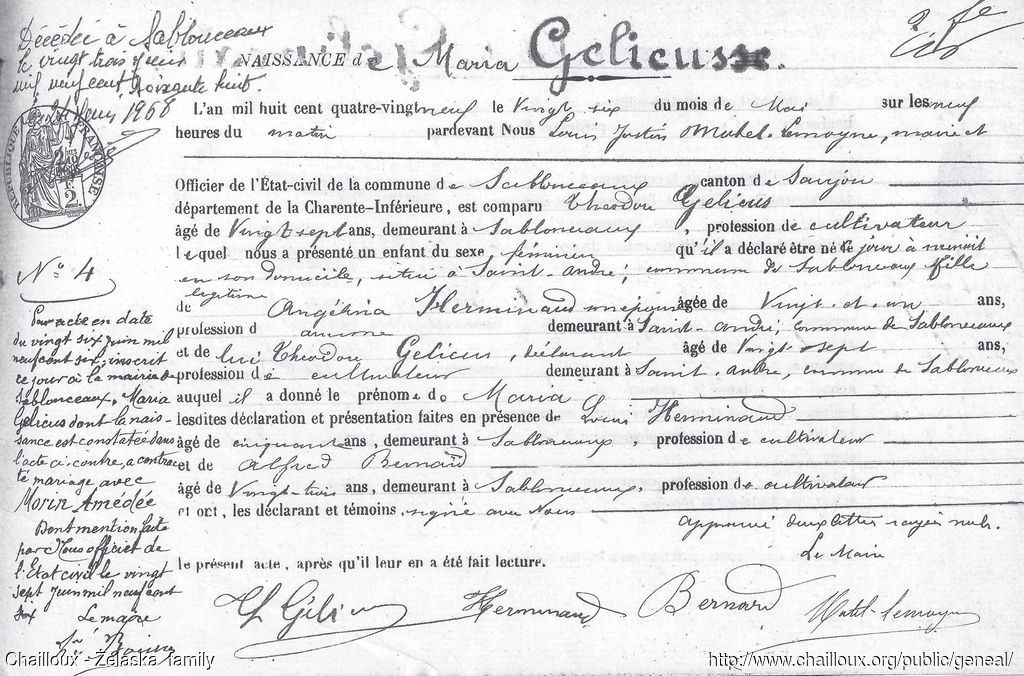 Décédée à Sablonceaux
le vingt trois juin
mil neuf cent soixante huit.
1968
NAISSANCE de Maria Gelicus.
L'an mil huit cent quatre-vingt neuf le Vingt six du mois de Mai sur les neuf
heures du matin pardevant Nous Louis Justin Lemoyne, maire et
Officier de l'État-civil de la commune de Sablonceaux canton de Saujon
département de la Charente-Inférieure, est comparu Théodore Gelicus
âgé de Vingt sept ans, demeurant à Sablonceaux, profession de cultivateur
lequel nous a présenté un enfant du sexe féminin qu'il a déclaré être né ce jour à minuit
en son domicile, situé à Saint-André, commune de Sablonceaux fille
légitime
de Angélina Herminaud son épouse âgée de Vingt-et-un ans,
profession d aucune demeurant à Saint-andré, commune de Sablonceaux
et de lui Théodore Gelicus, déclarant âgé de Vingt-sept ans,
profession de cultivateur demeurant à Saint-andré, commune de Sablonceaux
auquel il a donné le prénom de Maria
lesdites déclaration et présentation faites en présence de Louis Herminaud
âgé de cinquante ans, demeurant à Sablonceaux, profession de cultivateur
et de Alfred Bernard
âgé de Vingt-trois ans, demeurant à Sablonceaux, profession de cultivateur
et ont, les déclarant et témoins, signé avec Nous
le présent acte, après qu'il leur en a été fait lecture.
approuvé deux lettres rayées nuls.
Le Maire
Gélicus Herminaud Bernard Lemoyne
RÉPUBLIQUE FRANÇAISE
2
N° 4
Par acte en date
du vingt six juin mil
neuf cent six, inscrit
ce jour à la mairie de
Sablonceaux, Maria
Gelicus dont la nais-
sance est constatée dans
l'acte ci-contre, a contrac
té mariage avec
Morin Amédée
Dont mention faite
par Nous officier de
l'Etat civil le vingt
sept juin mil neuf cent
six
Le maire
Chailloux - Zelaska family
http://www.chailloux.org/public/geneal/